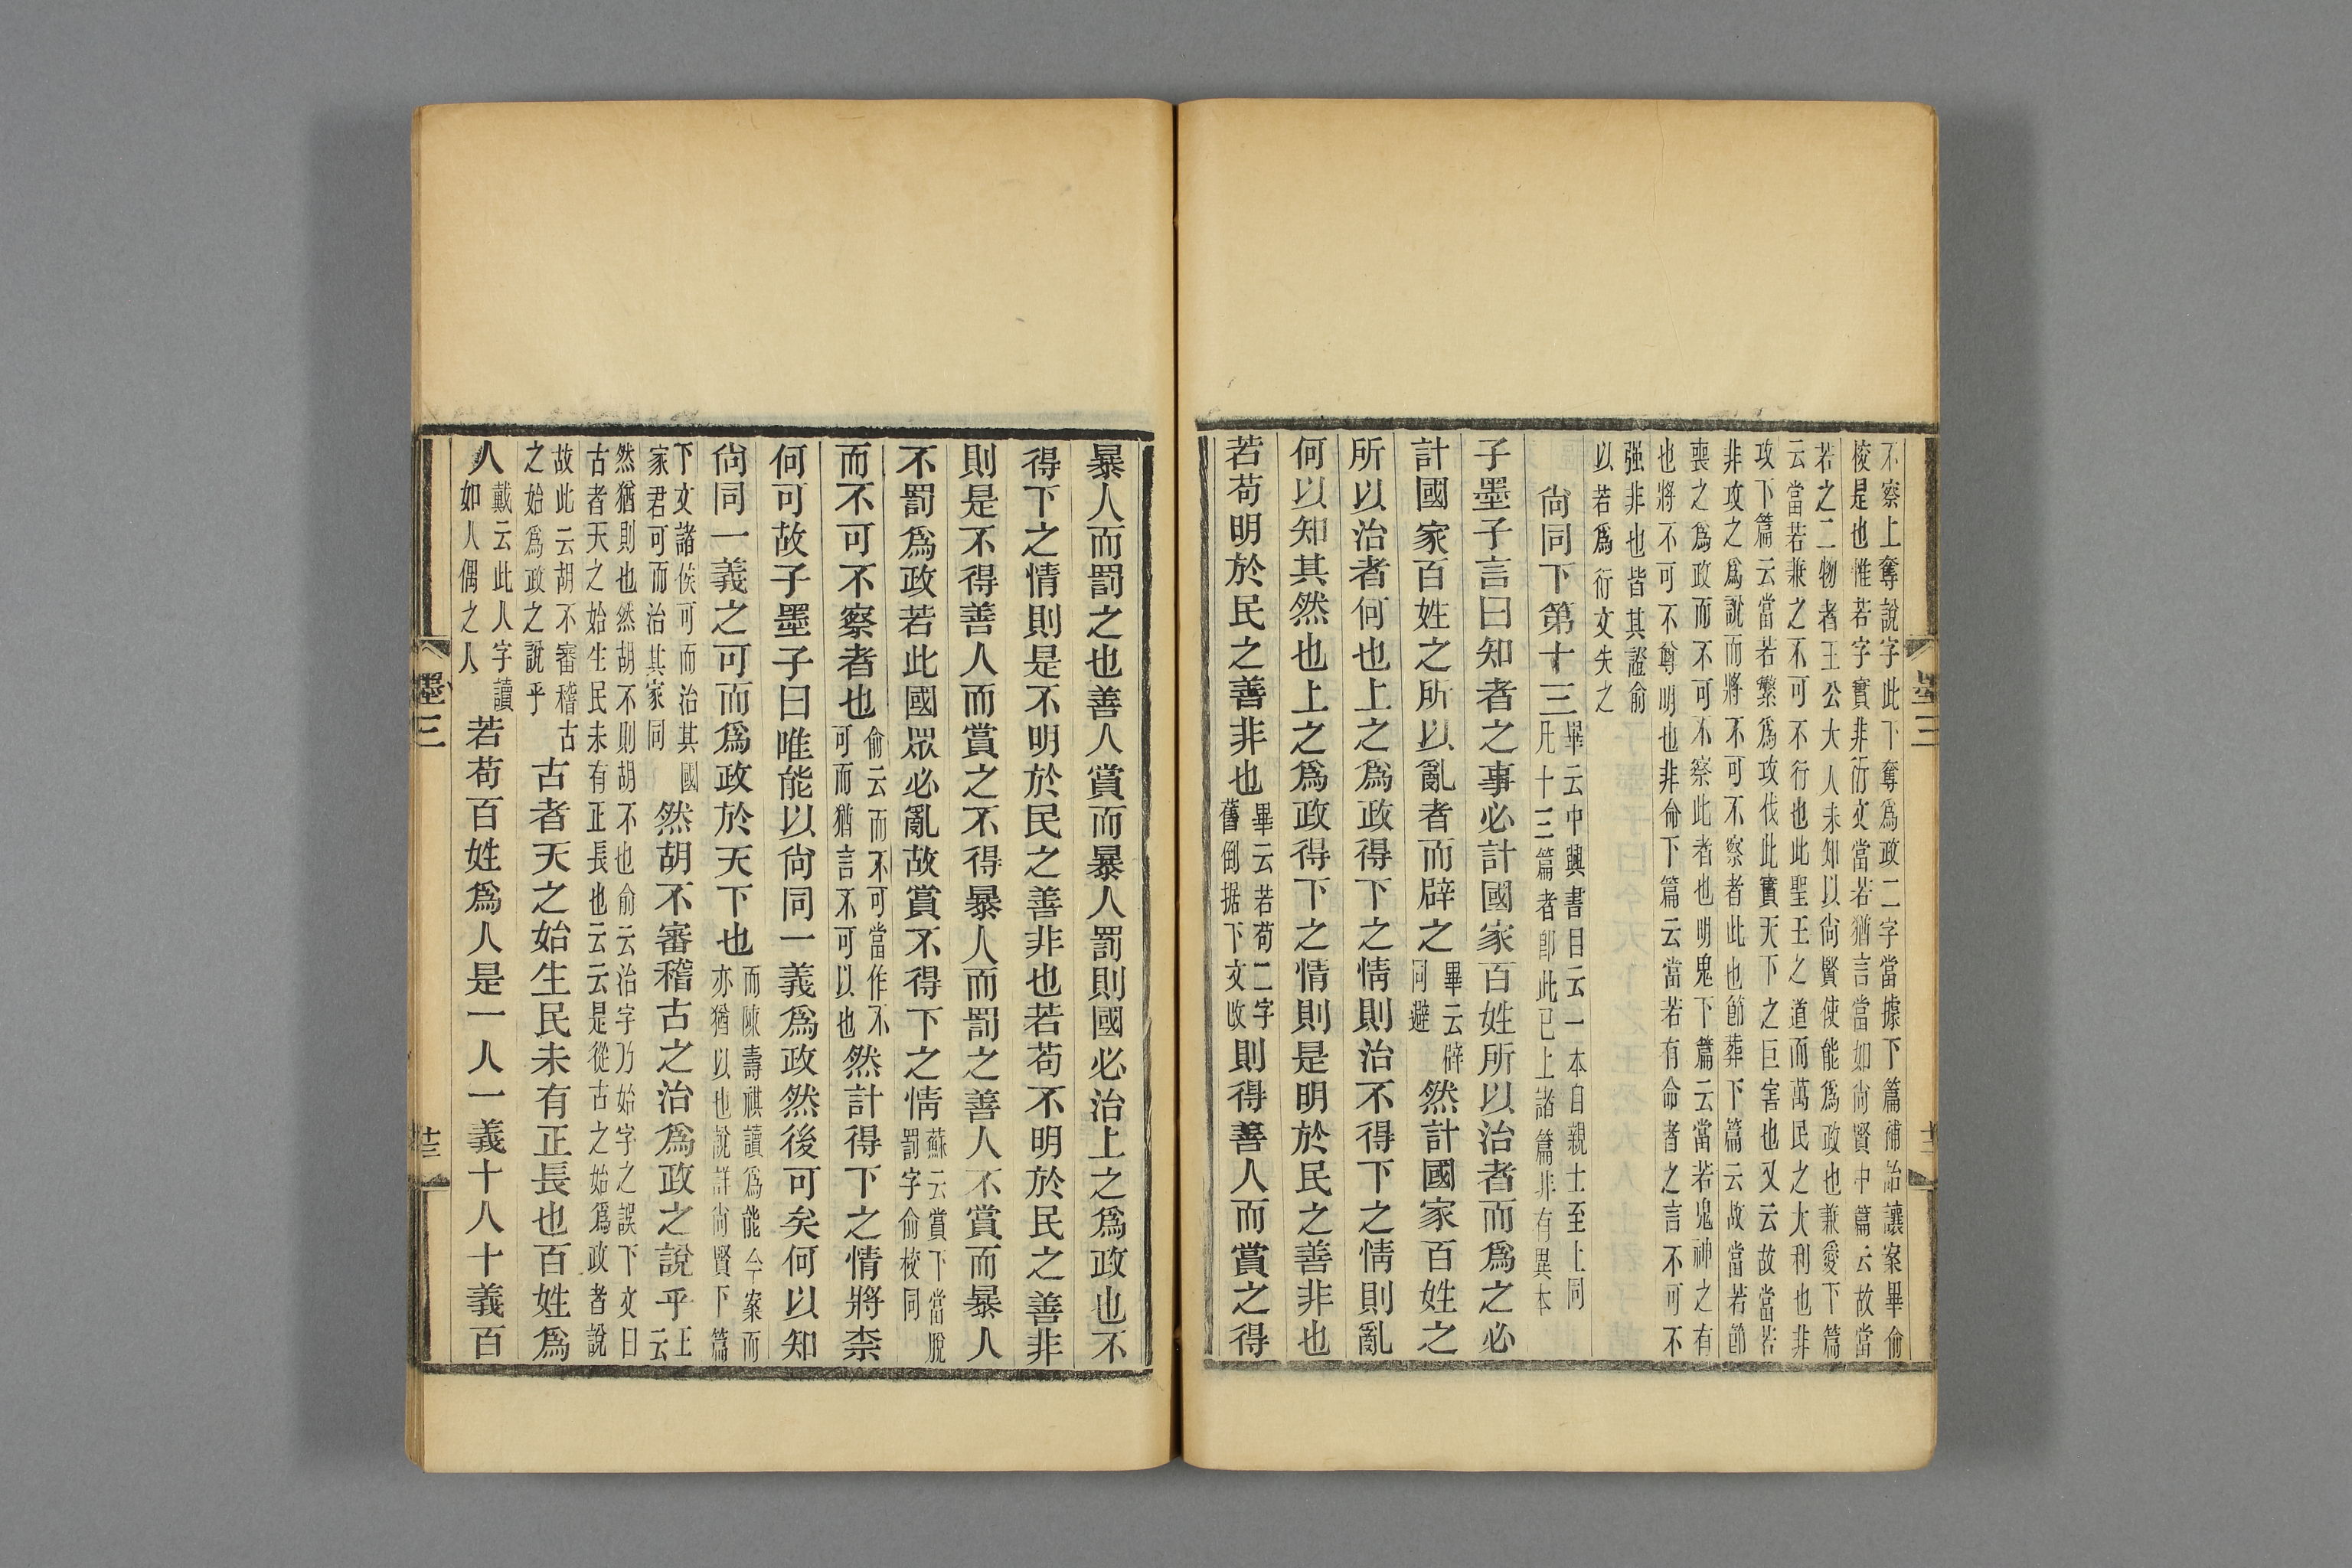 墨三
十二
不察上奪說字此下奪爲政二字當據下篇補詒讓案畢俞
校是也惟若字實非衍文當若猶言當如尚賢中篇云故當
若之二物者王公大人未知以尚賢使能爲政也兼愛下篇
云當若兼之不可不行也此聖王之道而萬民之大利也非
攻下篇云當若繁爲攻伐此實天下之巨害也又云故當若
非攻之爲說而將不可不察者此也節葬下篇云故當若節
喪之爲政而不可不察此者也明鬼下篇云當若鬼神之有
也將不可不尊明也非命下篇云當若有命者之言不可不
强非也皆其證俞
以若爲衍文失之
尚同下第十三畢云中興書目云一本自親士至上同凡十三篇者卽此已上諸篇非有異本
子墨子言曰知者之事必計國家百姓所以治者而爲之必
計國家百姓之所以亂者而辟之畢云辟同避然計國家百姓之
所以治者何也上之爲政得下之情則治不得下之情則亂
何以知其然也上之爲政得下之情則是明於民之善非也
若苟明於民之善非也畢云若苟二字舊倒据下文改則得善人而賞之得
暴人而罰之也善人賞而暴人罰則國必治上之爲政也不
得下之情則是不明於民之善非也若苟不明於民之善非
則是不得善人而賞之不得暴人而罰之善人不賞而暴人
不罰爲政若此國眾必亂故賞不得下之情蘇云賞下當脫罰字俞校同
而不可不察者也俞云而不可當作不可而猶言不可以也然計得下之情將柰
何可故子墨子曰唯能以尚同一義爲政然後可矣何以知
尚同一義之可而爲政於天下也而陳壽祺讀爲能今案而亦猶以也說詳尚賢下篇
下文諸侯可而治其國家君可而治其家同然胡不審稽古之治爲政之說乎王云
然猶則也然胡不則胡不也俞云治字乃始字之誤下文曰
古者天之始生民未有正長也云云是從古之始爲政者說
故此云胡不審稽古之始爲政之說乎古者天之始生民未有正長也百姓爲
人戴云此人字讀如人偶之人若苟百姓爲人是一人一義十人十義百
墨三
十三